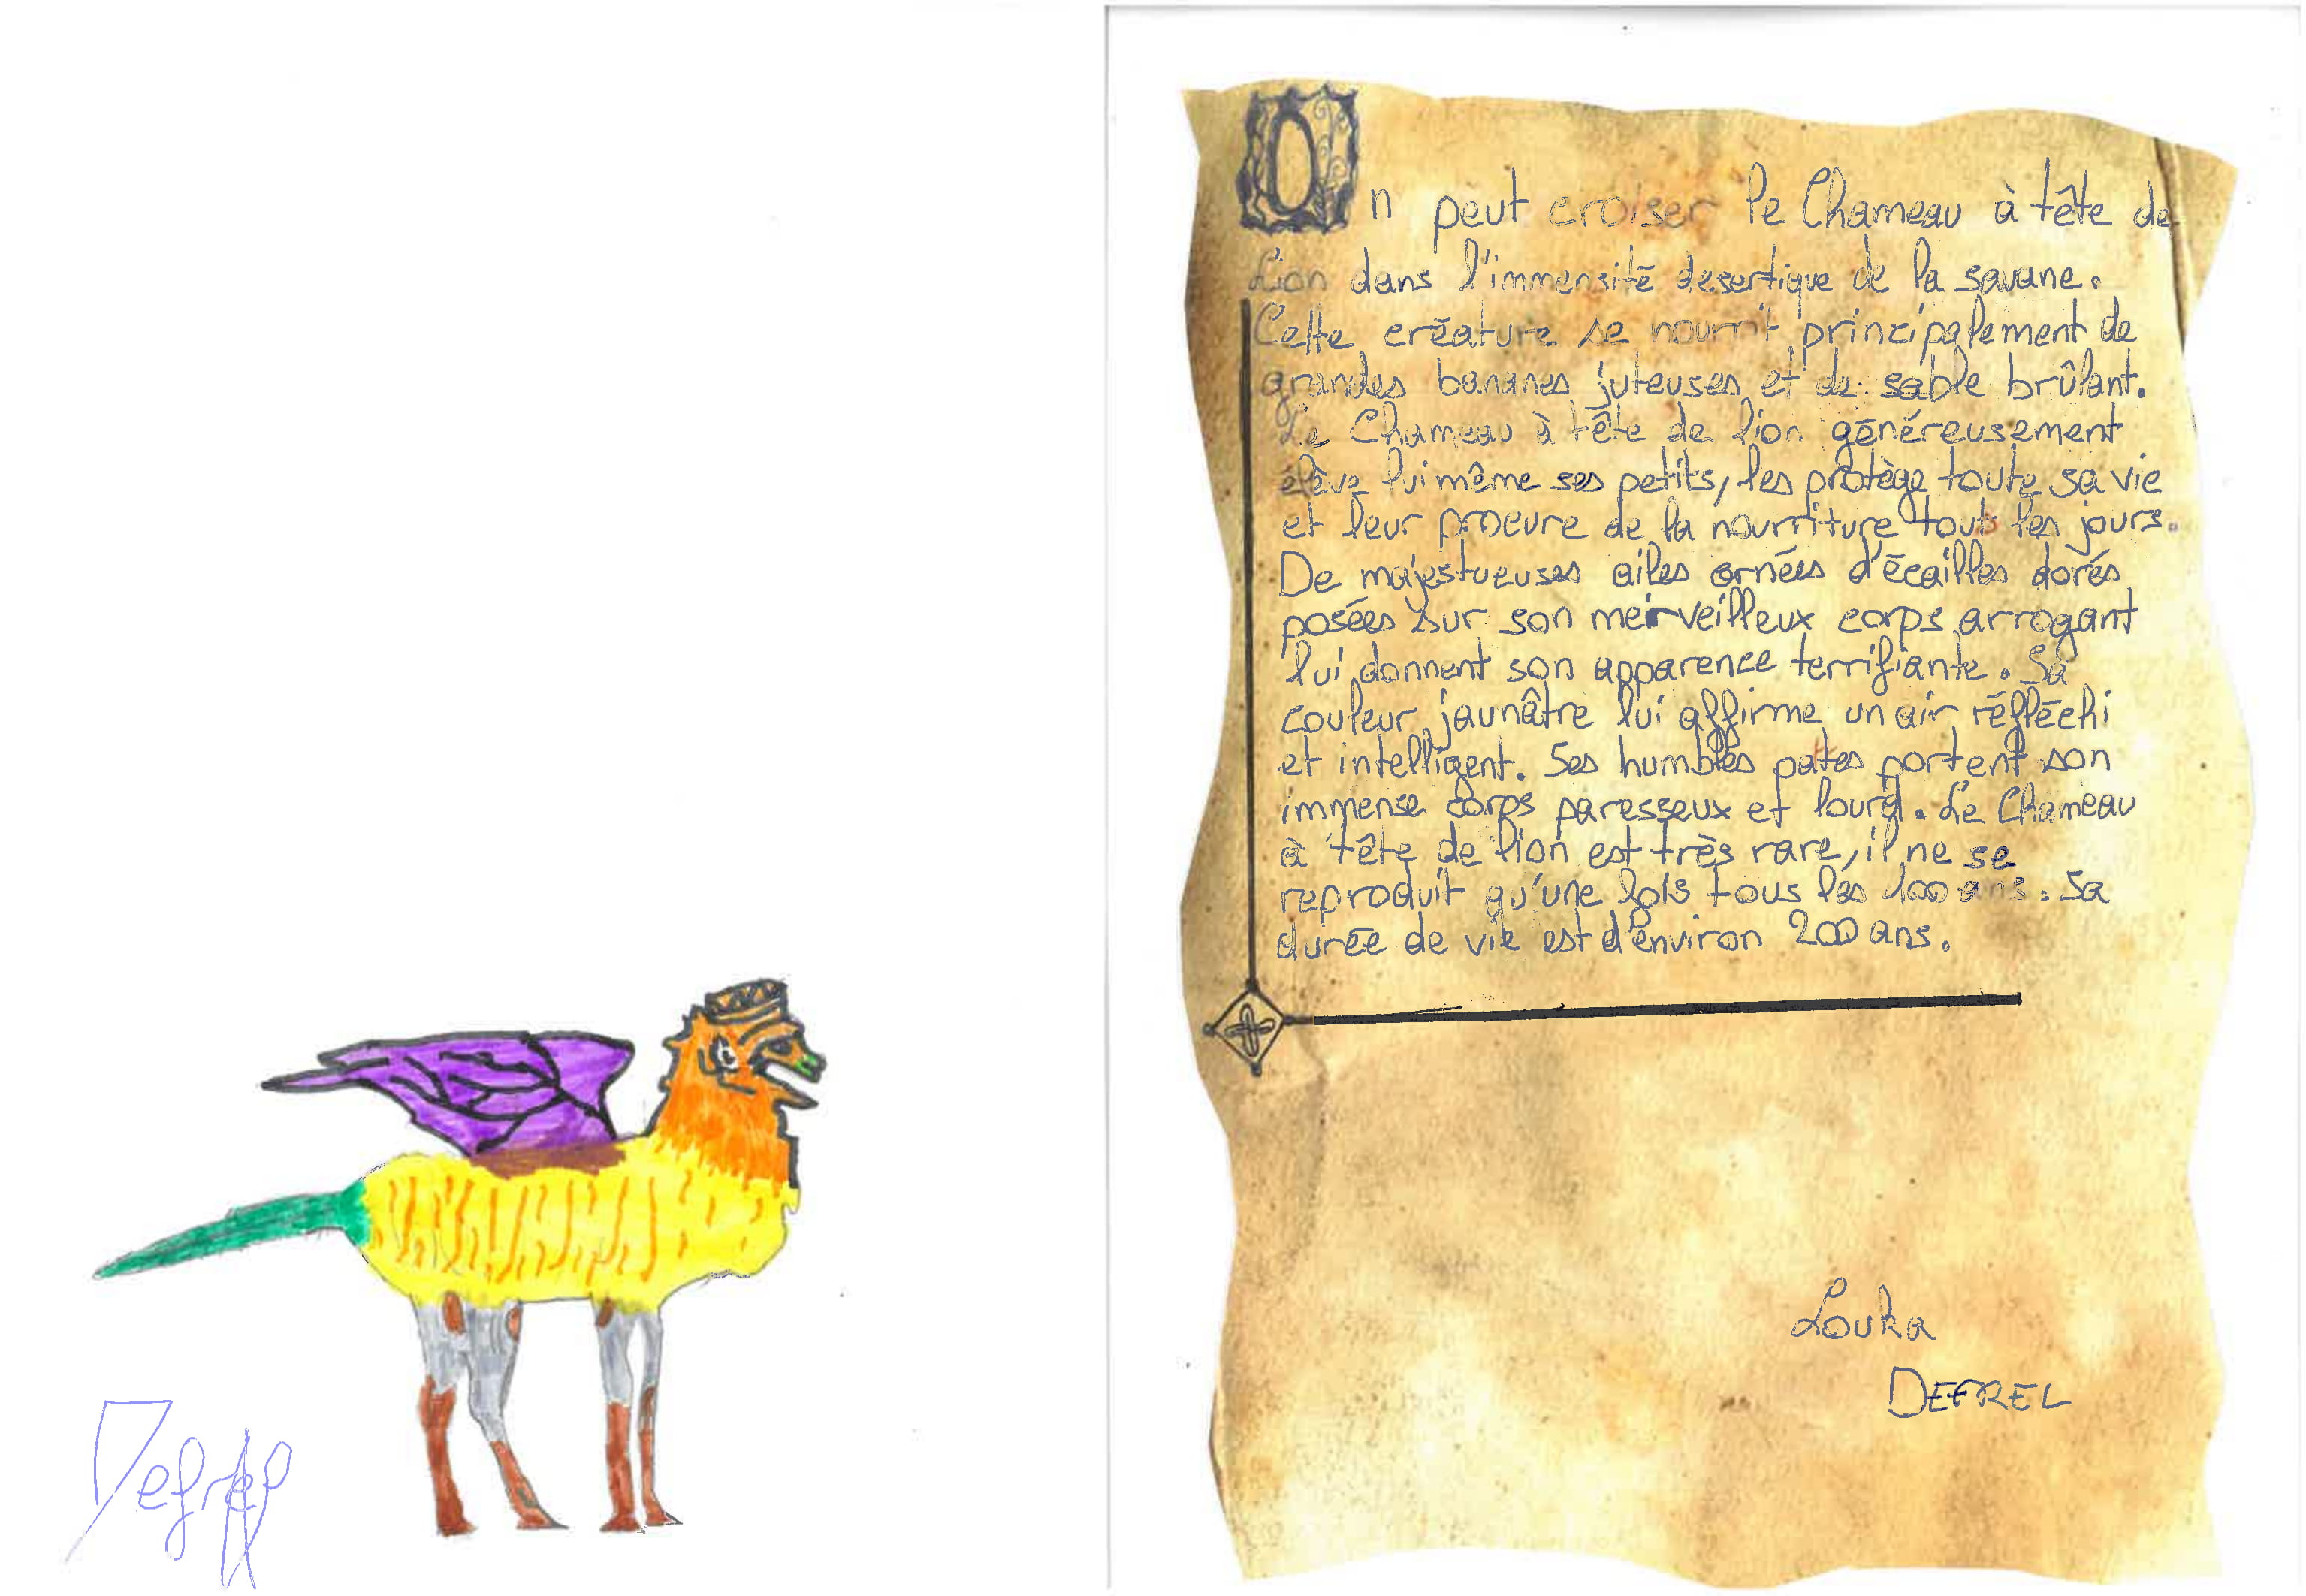 On peut croiser le Chameau à tête de
Lion dans l'immensité desertique de la savane.
Cette créature se nourrit principalement de
grandes bananes juteuses et de sable brûlant.
Le Chameau à tête de lion généreusement
élève lui même ses petits, les protège toute sa vie
et leur procure de la nourriture tous les jours.
De majestueuses ailes ornées d'écailles dorés
posées sur son merveilleux corps arrogant
lui donnent son apparence terrifiante. Sa
couleur jaunâtre lui affirme un air réfléchi
et intelligent. Ses humbles pattes portent son
immense corps paresseux et lourd. Le Chameau
à tête de lion est très rare, il ne se
reproduit qu'une fois tous les 100 ans. Sa
durée de vie est d'environ 200 ans.
Louka
DEFREL
Defrel